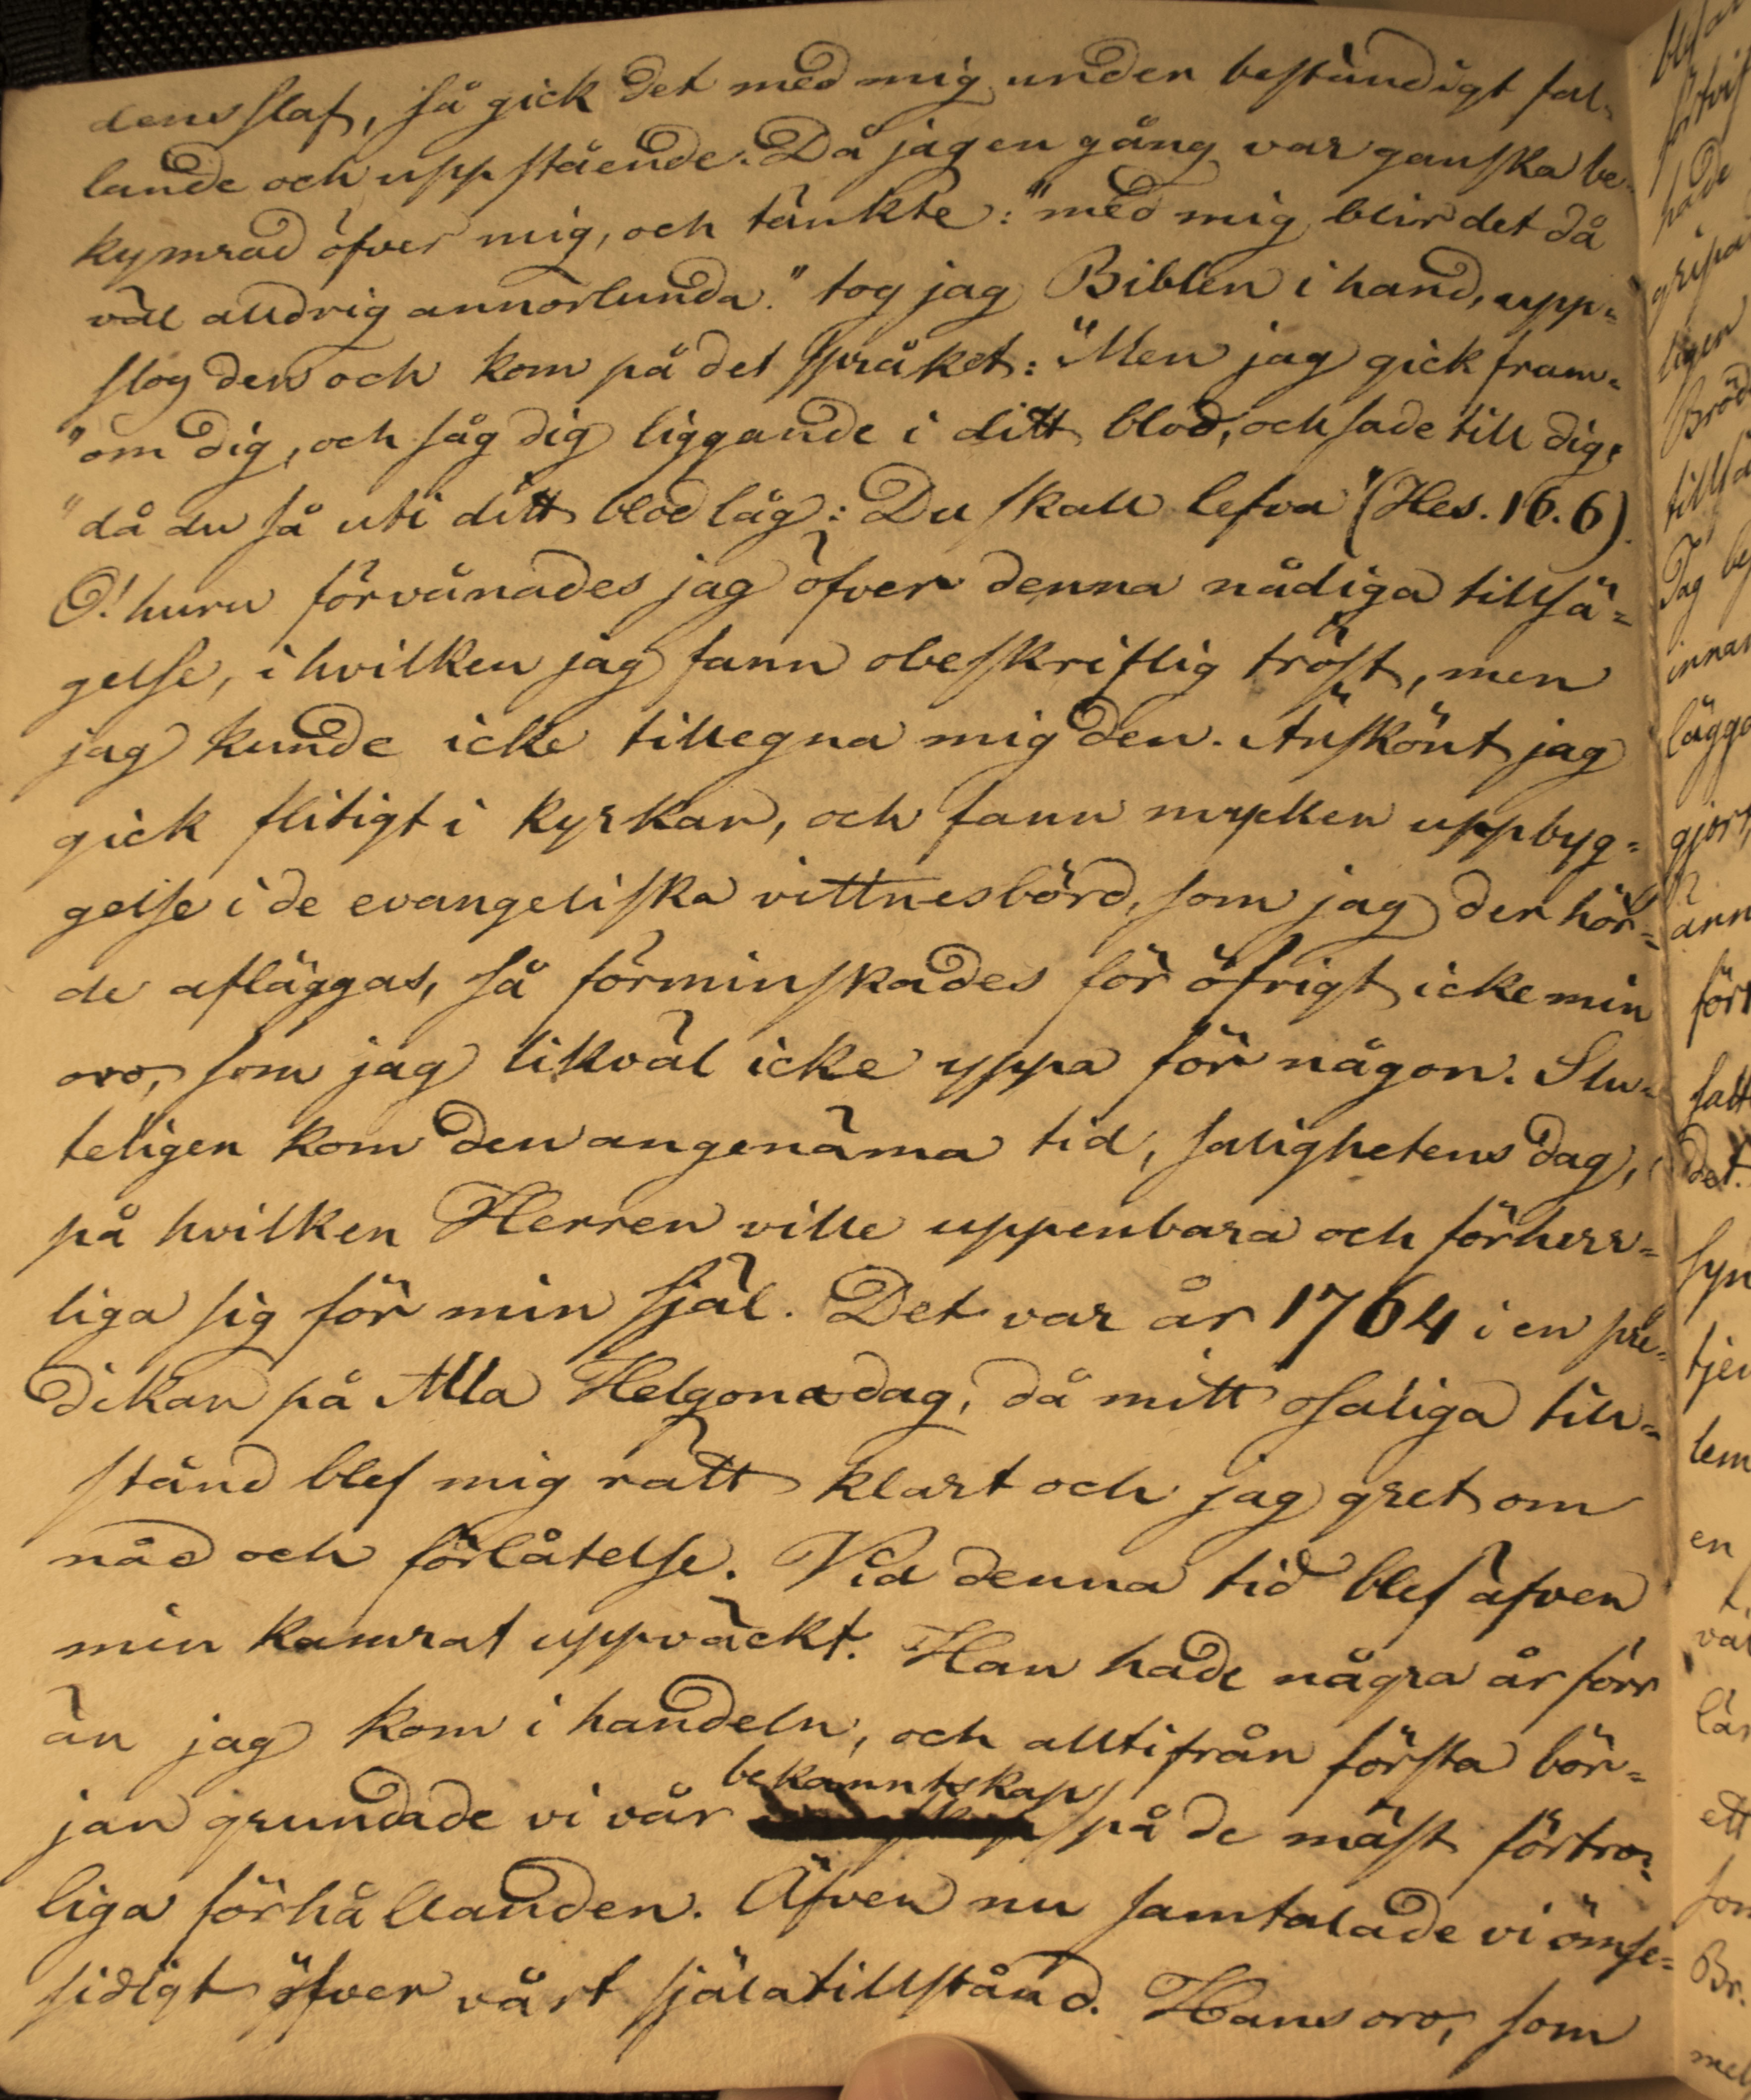 dens slaf, så gick det med mig under beständigt fal-
lande och uppstående. Då jag en gång var ganska be-
kymrad öfver mig, och tänkte: "med mig blir det då
väl alldrig annorlunda." tog jag Biblen i hand, upp-
slog den och kom på det språket: "Men jag gick fram-
"om dig, och såg dig liggande i ditt blod, och sade till dig,
"då du så uti ditt blod låg: Du skall lefva" (Hes. 16.6).
O! huru förvånades jag öfver denna nådiga tillsä-
gelse, i hvilken jag fann obeskriflig tröst, men
jag kunde icke tillegna mig den. Änskönt jag
gick flitigt i kyrkan, och fann mycken uppbyg-
gelse i de evangeliska vittnesbörd, som jag der hör-
de afläggas, så förminskades för öfrigt icke min
oro, som jag likväl icke yppa för någon. Slu-
teligen kom den angenäma tid, salighetens dag,
på hvilken Herren ville uppenbara och förherr-
liga sig för min själ. Det var år 1764 i en pre-
dikan på Alla Helgona dag, då mitt osaliga till-
stånd blef mig rätt klart och jag gret om
nåd och förlåtelse. Vid denna tid blef äfven
min kamrat uppväckt. Han hade några år förr
än jag kom i handeln, och alltifrån första bör-
bekanntskap
jan grundade vi vår på de mäst förtro-
liga förhållanden. Äfven nu samtalade vi ömse-
sidigt öfver vårt själatillstånd. Hans oro, som